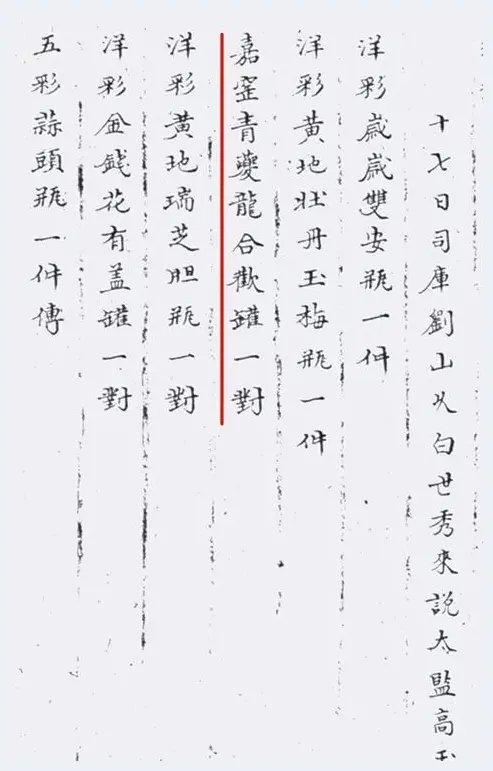 十七日司庫劉山久白世秀來說太監高玉
洋彩歲歲雙安瓶一件
洋彩黃地壯丹玉梅瓶一件
嘉窑青夔龍合歡罐一對
洋彩黃地瑞芝胆瓶一對
洋彩金錢花有盖罐一對
五彩蒜頭瓶一件傳